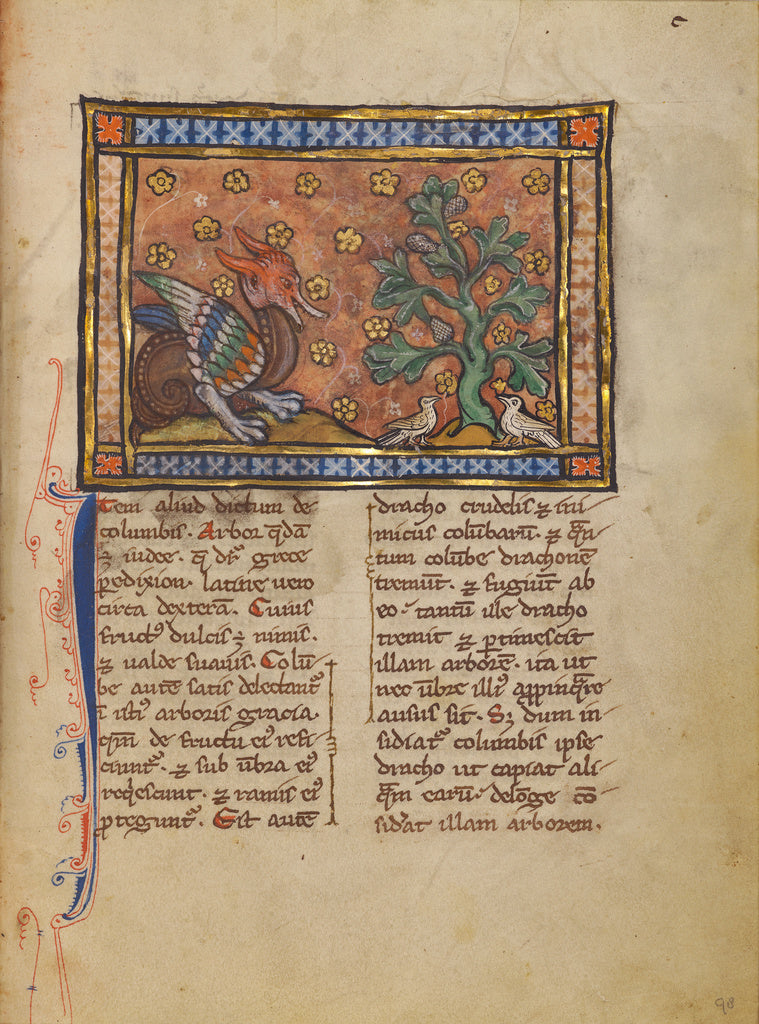 Item aliud dictum de
columbis. Arbor q̄dā
ī iudee. q̄ dr̄ grece
peredixion. latine uero
circa dexterā. Cuius
fruct᷒ dulcis ē nimis.
⁊ ualde suauis. Colū-
be autē satis delectant᷑
ī isti᷒ arboris gracia.
qm̄ de fructu ei᷒ refi-
ciunt᷑. ⁊ sub ūbra ei᷒
reqͥescunt. ⁊ ramis ei᷒
ꝓtegunt᷑. Est autē
dracho crudelis ⁊ ini-
micus colūbarū. ⁊ qͣn-
tum colūbe drachonē
tremūt. ⁊ fugiūt ab
eo. tantū ille dracho
tremit ⁊ ꝑtimescit
illam arborē. ita ut
nec ūbre illi᷒ appinqͣre
ausus sit. Sꝫ dum in-
sidiat᷑ columbis ipse
dracho ut capiat ali-
qͣm earū. delōge cō-
sid'at illam arborem.
98